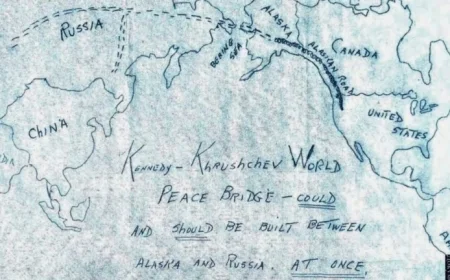 RUSSIA
ALASKA
CANADA
BERING
SEA
ALASKAN ROAD
UNITED
STATES
CHINA
KENNEDY – KHRUSHCHEV WORLD
PEACE BRIDGE – COULD
AND SHOULD BE BUILT BETWEEN
ALASKA AND RUSSIA. AT ONCE